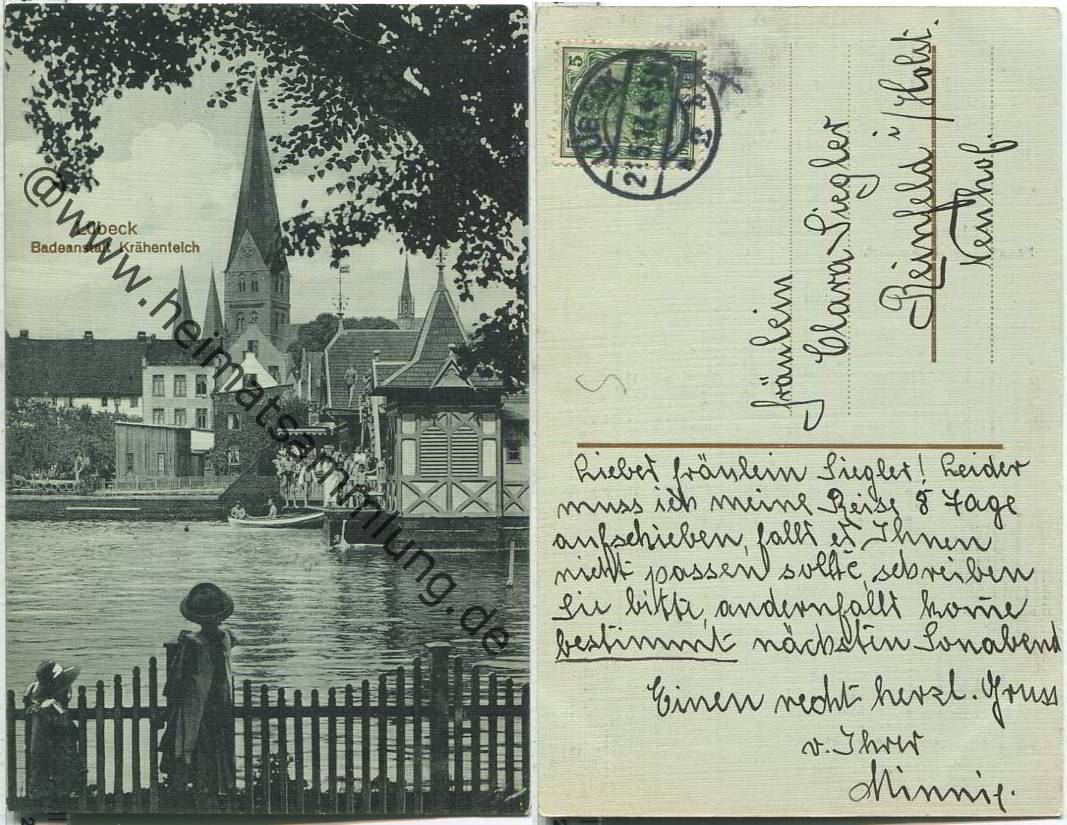 Lübeck
Badeanstalt Krähenteich
@www.heimatsammlung.de
5
LÜBECK
Fräulein
Clara Siegler
Reinfeld i/Holst.
Neinhof.
Liebes Fräulein Siegler! Leider
muss ich meine Reise 8 Tage
aufschieben, falls es Ihnen
nicht passen sollte, schreiben
Sie bitte, andernfalls kom̅e
bestimmt nächsten Sonabend
Einen recht herzl. Gruss
v. Ihrer
Minnie.